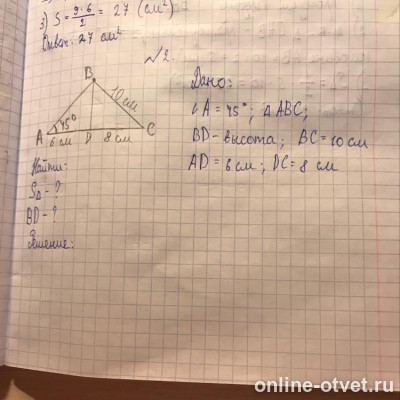 3) S = 9·6/2 = 27 (см²)
Ответ: 27 см²
№2.
Дано:
∠A = 45°; △ABC;
BD - высота; BC = 10 см
AD = 6 см; DC = 8 см
B
10 см
45°
A D C
6 см 8 см
Найти:
S△ - ?
BD - ?
Решение:
online-otvet.ru